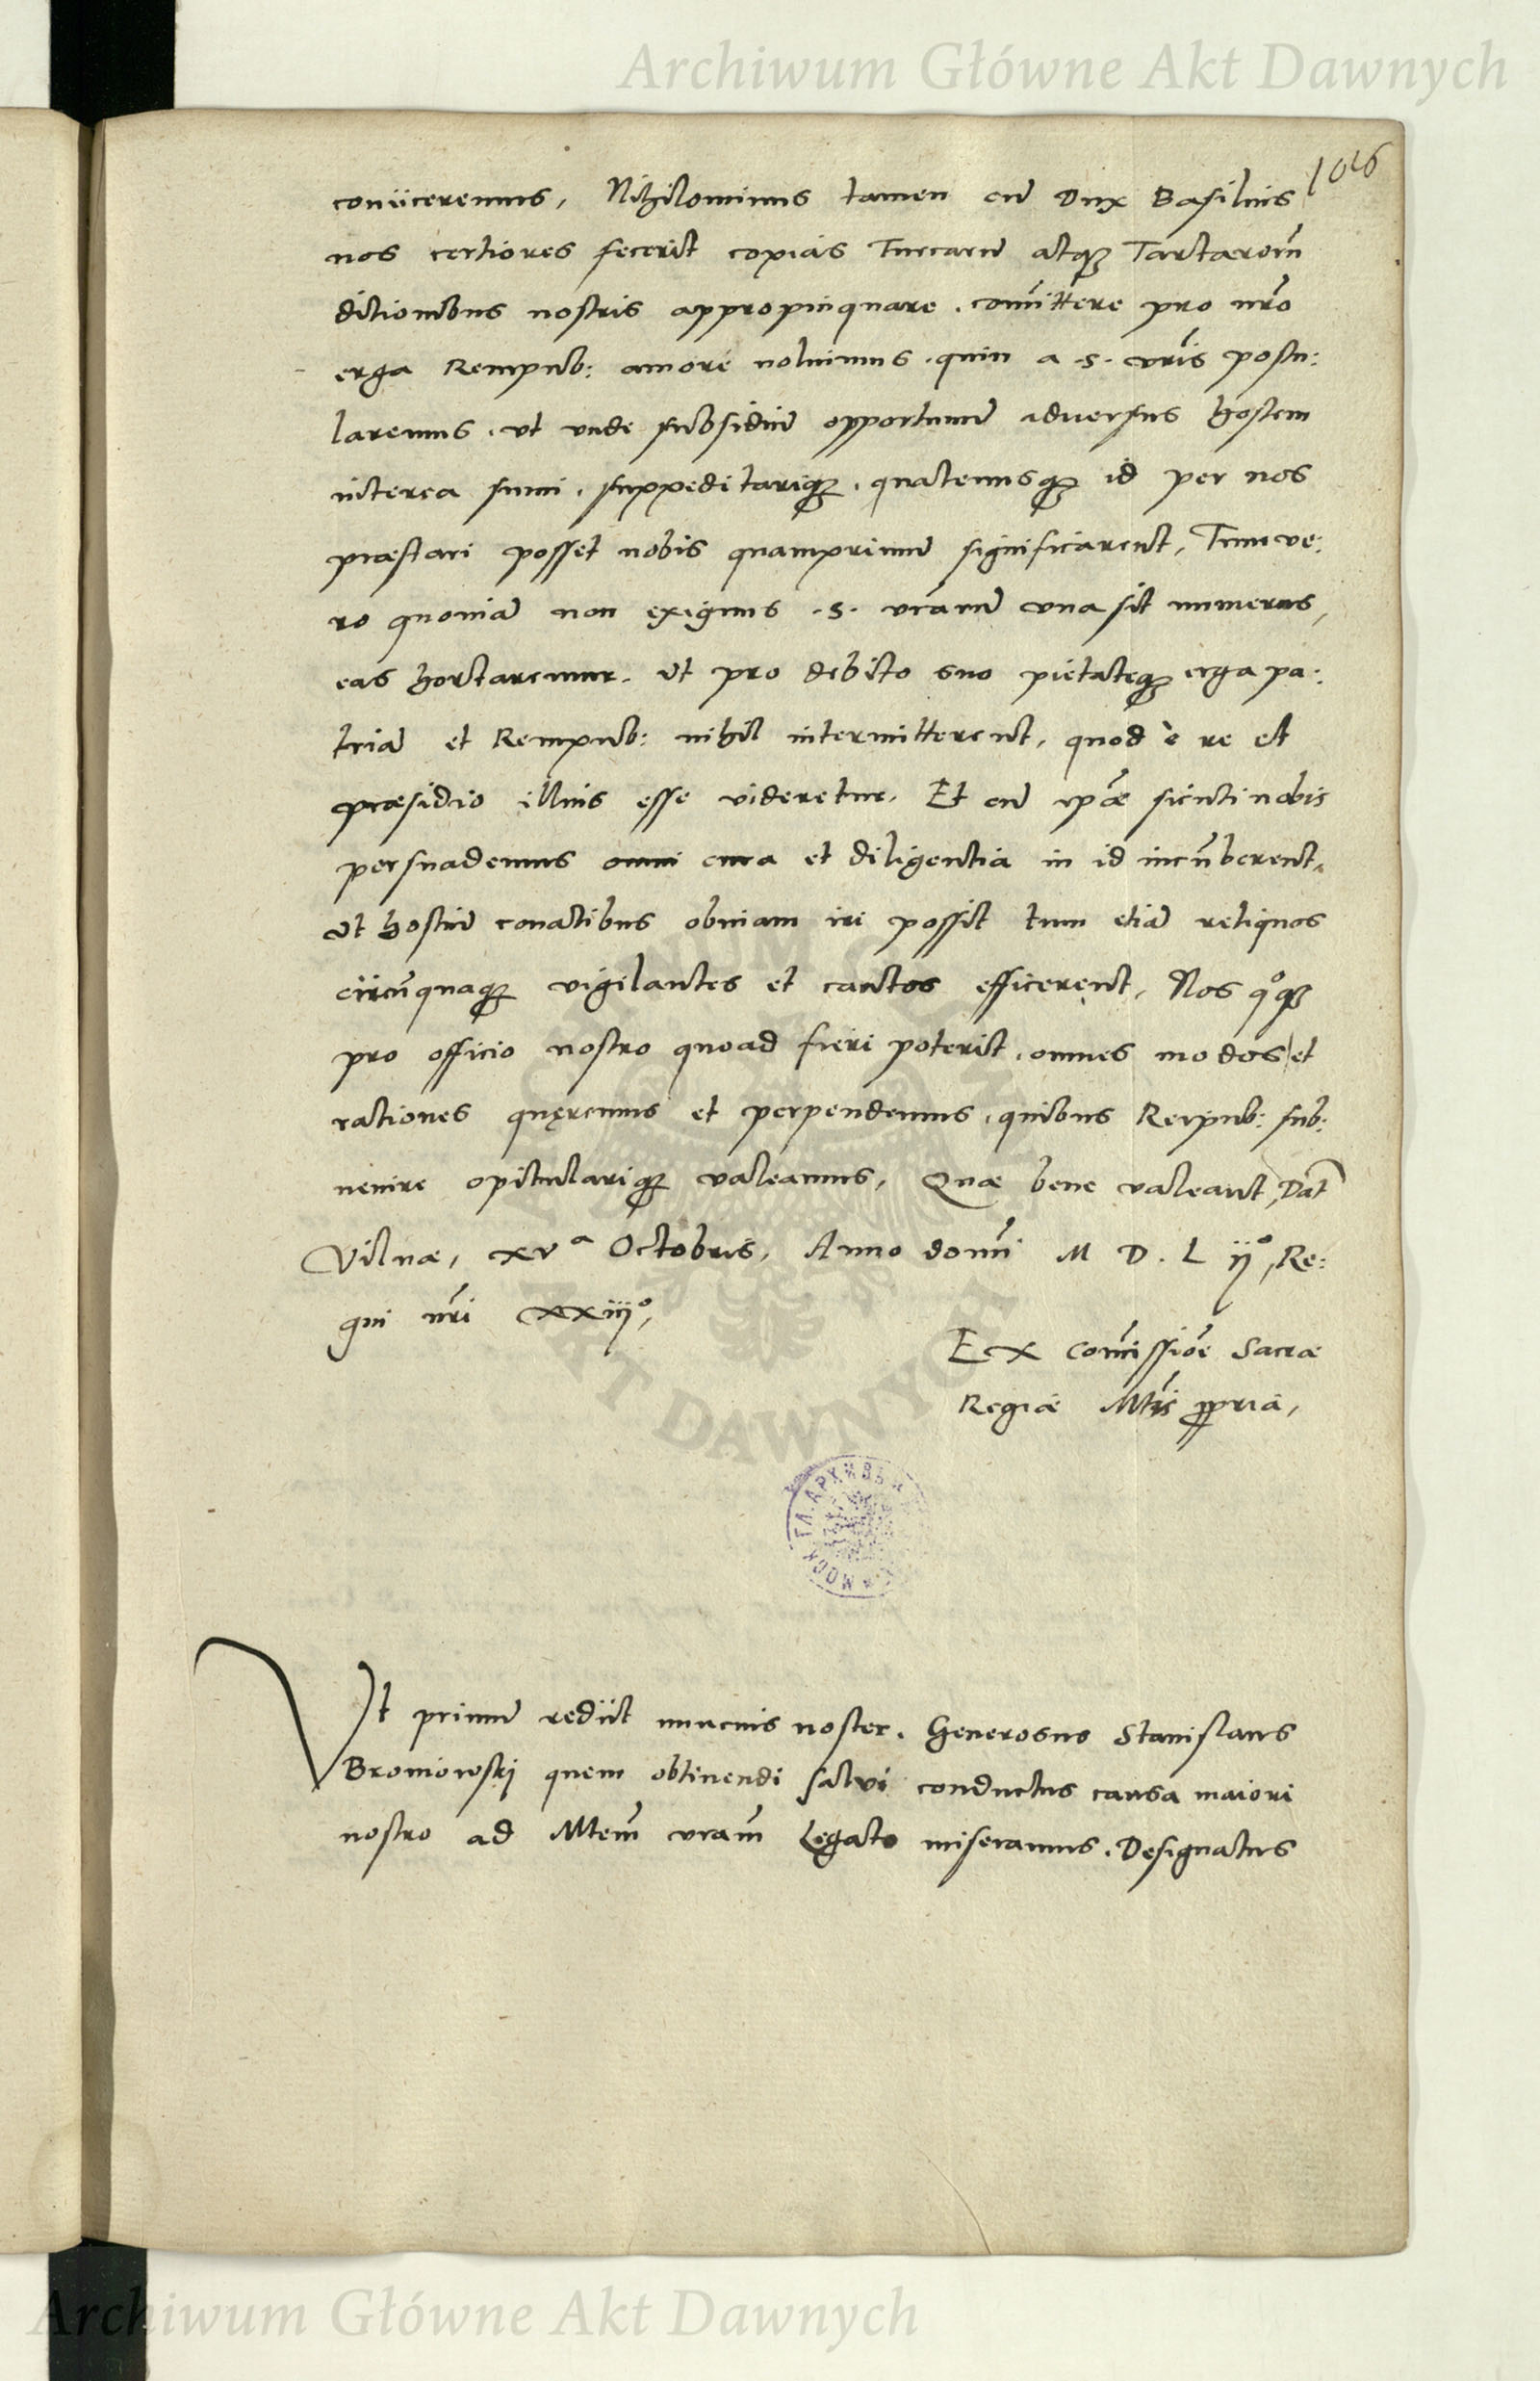 Archiwum Główne Akt Dawnych
1026
coniiceremus, Nihilominus tamen cũ Dux Basilius
nos certiores fecerit copias Turcarũ atqꝫ Tartarorm̃
ditionibus nostris appropinquare. com̃ittere pro nr̃o
erga Rempub: amore noluimus. quin a .S. vr̃is postu:
laremus. ut unde subsidiũ opportunũ adversus hostem
interea sumi. suppeditariqꝫ. quatenusqꝫ id per nos
præstari posset nobis quamprimũ significarent, Tum ve:
ro quoniã non exiguus .S. vr̃arũ una sit numerus,
eas hortaremur. ut pro debito suo pietateqꝫ erga pa:
triã et Rempub: nihil intermitterent, quod è re et
præsidio illius esse videretur. Et cũ ip̃æ sicuti nobis
persuademus omni cura et diligentia in id incũberent.
ut hostiũ conatibus obviam iri possit tum etiã reliquos
circũquaqꝫ vigilantes et cautos efficerent, Nos qᵒqꝫ
pro officio nostro quoad fieri poterit. omnes modos et
rationes quęremus et perpendemus. quibus Reipub: sub:
venire opitulariqꝫ valeamus, Quæ bene valeant, Dat̃
Vilnæ, xvᵃ Octobris, Anno domĩ M D. L ijᵒ, Re:
gni nr̃i xxiijᵒ,
Ex com̃issiõe Sacræ
Regiæ Mt̃is ꝓpria,
ARCHIWUM GŁÓWNE AKT DAWNYCH
МОСК ГЛ. АРХИВЪ
Ut primũ rediit nuncius noster. Generosus Stanislaus
Bromowskj quem obtinendi salvi conductus causa maiori
nostro ad Mtem̃ vram̃ Legato miseramus. Designatus
Archiwum Główne Akt Dawnych